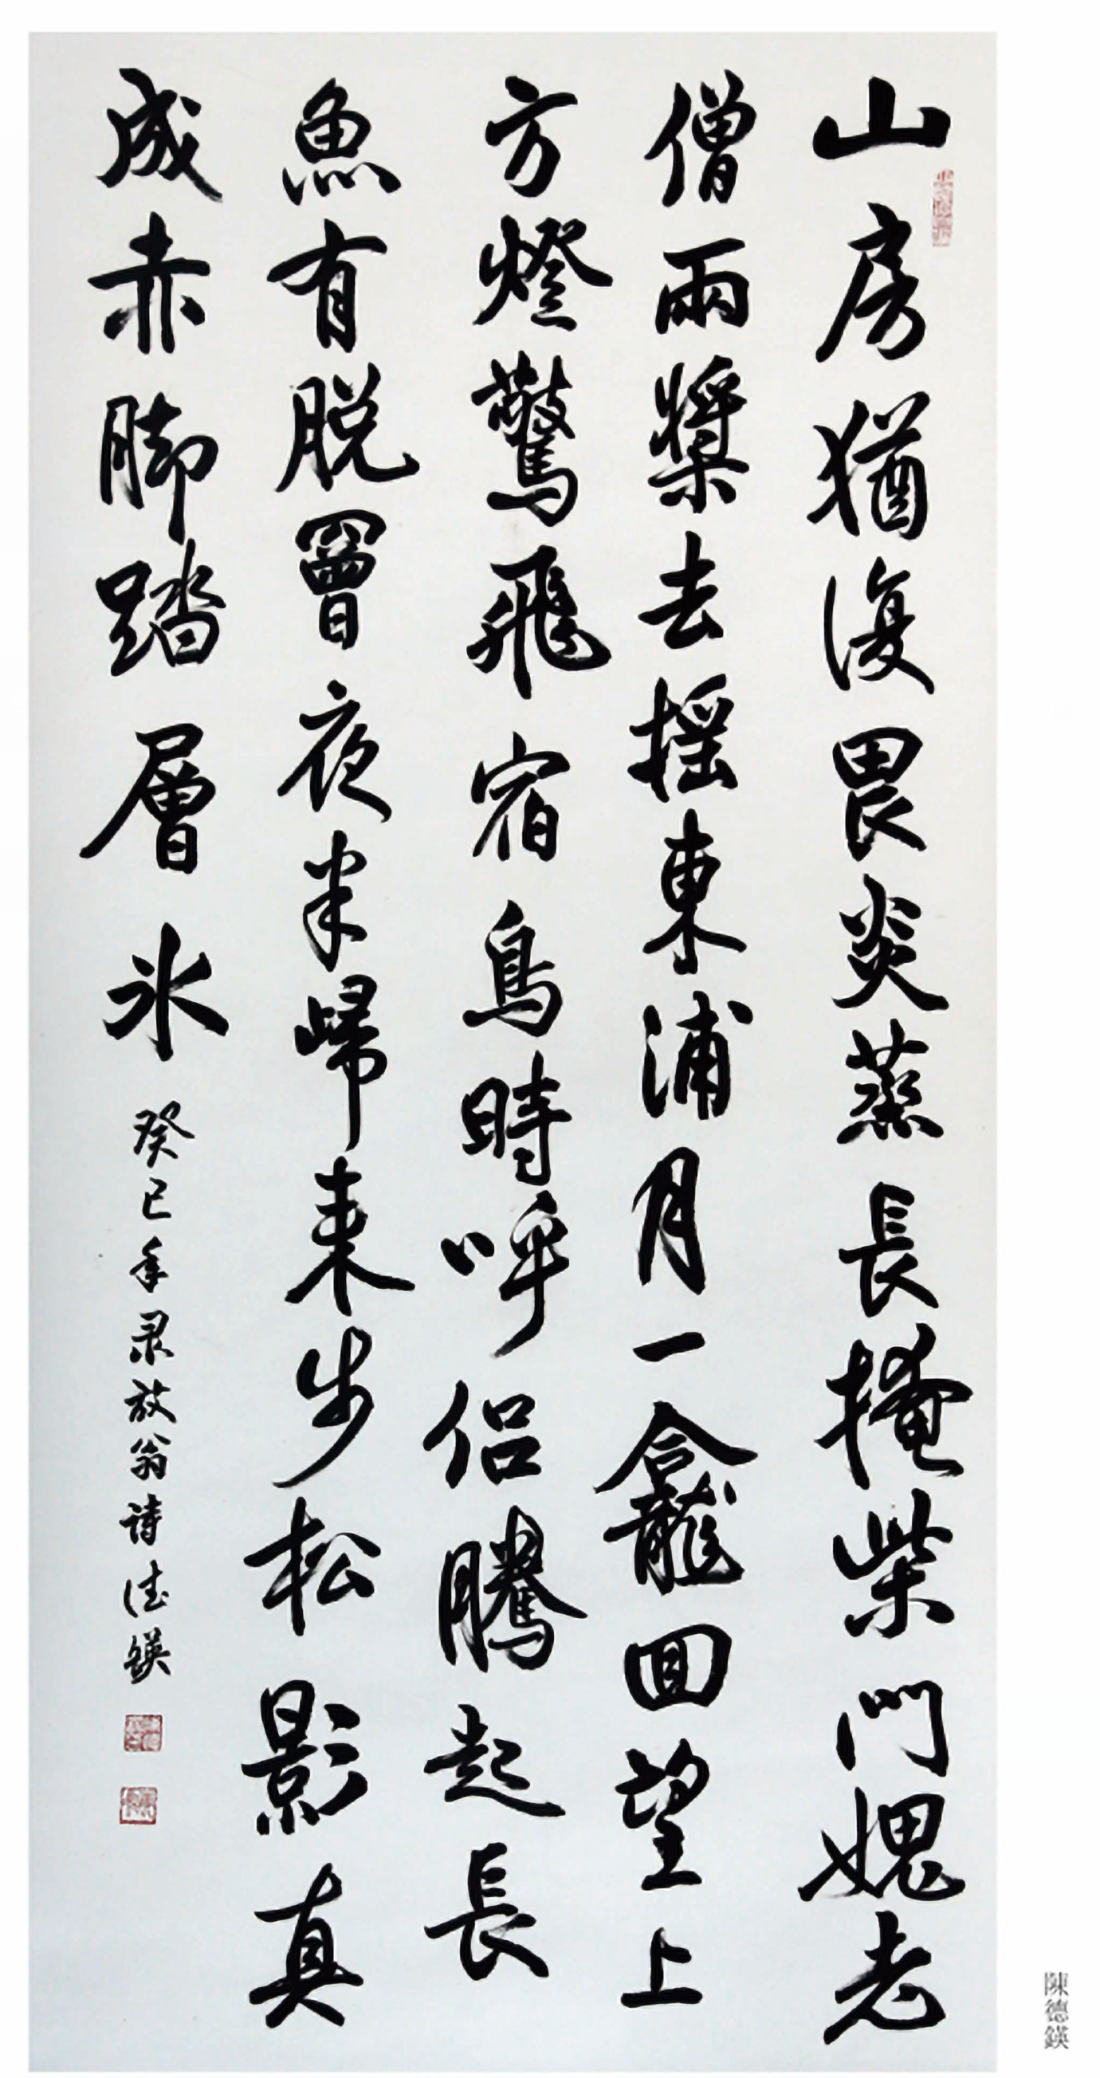 山房猶復畏炎蒸長掩柴門媿老
僧兩槳去搖東浦月一龕回望上
方燈驚飛宿鳥時呼侶騰起長
魚有脫罾夜半歸來步松影真
成赤腳踏層冰
癸巳年录放翁詩德鍈
陳德鍈